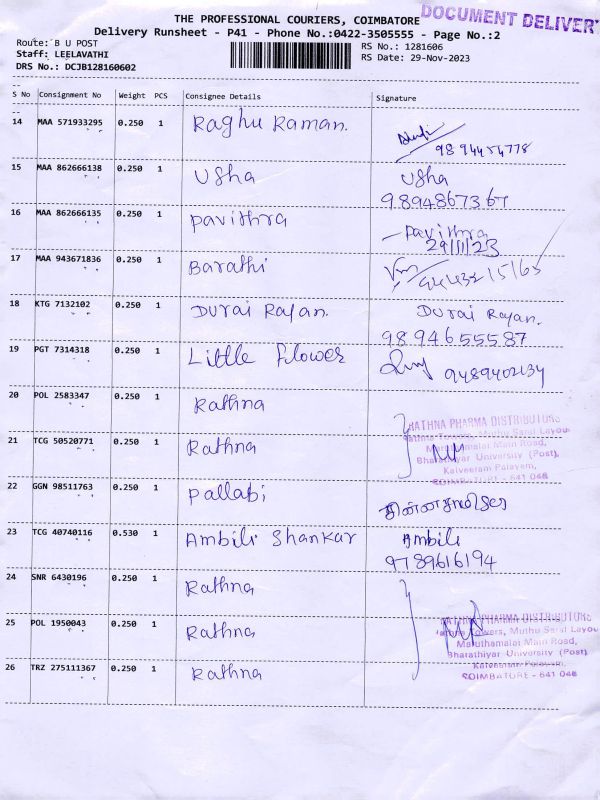 THE PROFESSIONAL COURIERS, COIMBATORE
DOCUMENT DELIVERY
Delivery Runsheet - P41 - Phone No.:0422-3505555 - Page No.:2
Route: B U POST
Staff: LEELAVATHI
DRS No.: DCJB128160602
RS No.: 1281606
RS Date: 29-Nov-2023
S No Consignment No Weight PCS Consignee Details Signature
14 MAA 571933295 0.250 1 Raghu Raman.
15 MAA 862666138 0.250 1 Usha Usha
9894867367
16 MAA 862666135 0.250 1 Pavithra Pavithra
29/11/23
17 MAA 943671836 0.250 1 Barathi
18 KTG 7132102 0.250 1 Durai Rajan. Durai Rajan.
9894655587
19 PGT 7314318 0.250 1 Little flower 9489402134
20 POL 2583347 0.250 1 Rathna
RATHNA PHARMA DISTRIBUTORS
21 TCG 50520771 0.250 1 Rathna
Rathna Towers, Muthu Saral Layou
Maruthamalai Main Road,
Bharathiyar University (Post),
Kalveeram Palayam,
COIMBATORE - 641 046
22 GGN 98511763 0.250 1 Pallabi
23 TCG 40740116 0.530 1 Ambili Shankar Ambili
9789616194
24 SNR 6430196 0.250 1 Rathna
25 POL 1950043 0.250 1 Rathna
RATHNA PHARMA DISTRIBUTORS
Rathna Towers, Muthu Saral Layou
Maruthamalai Main Road,
Bharathiyar University (Post)
Kalveeram Palayam,
COIMBATORE - 641 046
26 TRZ 275111367 0.250 1 Rathna